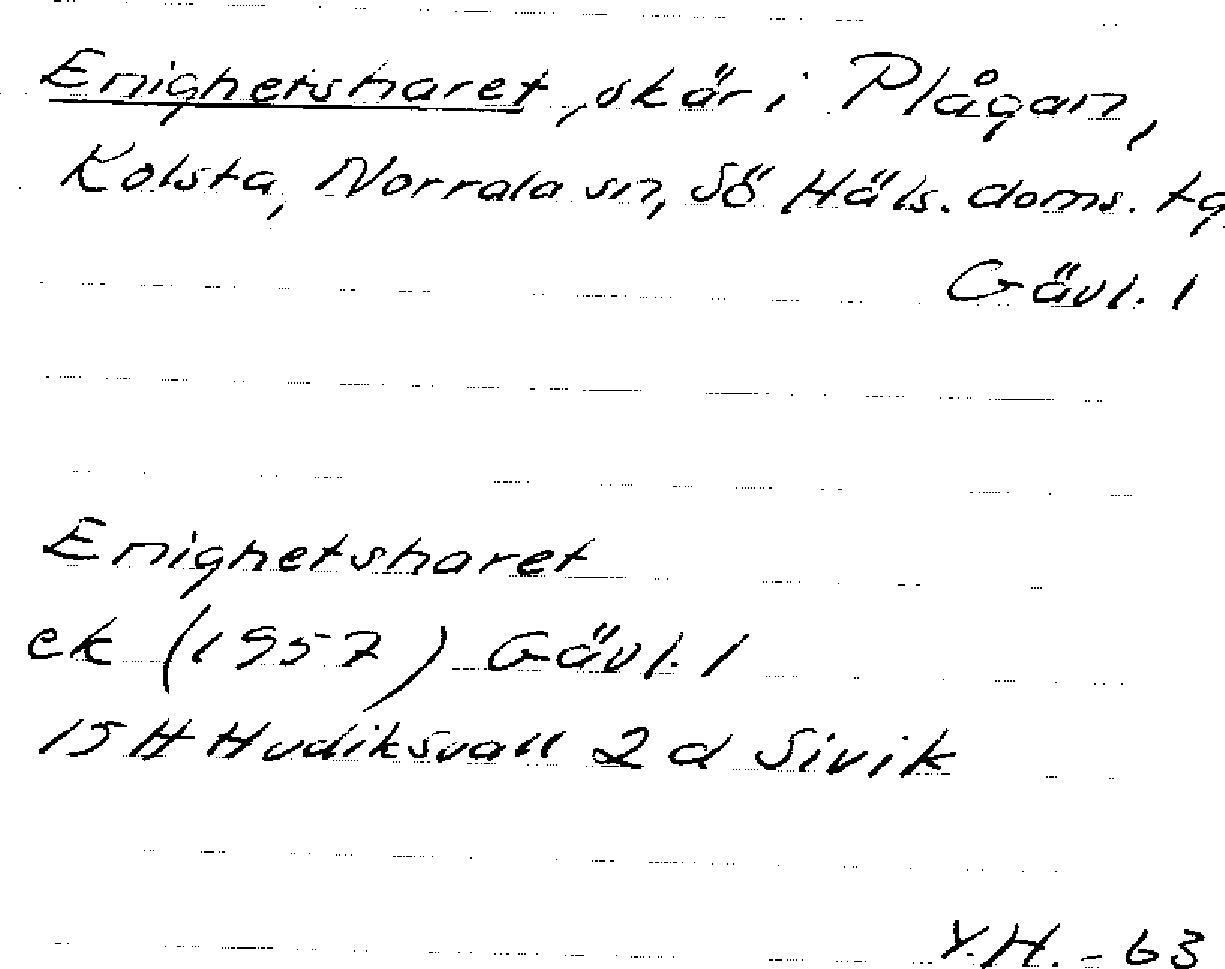 Enighetsharet, skär i Plågan,
Kolsta, Norrala sn, Sö Häls. doms. tg
Gävl. l
Enighetsharet
ek (1957) Gävl. l
15 H Hudiksvall 2 d Sivik
Y.H. - 63